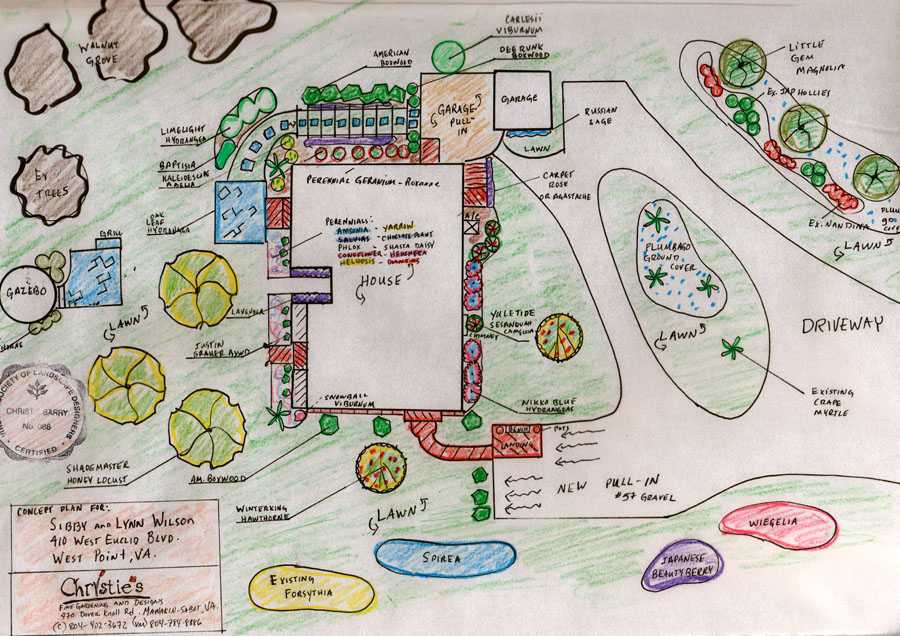 WALNUT
GROVE
AMERICAN
BOXWOOD
CARLESII
VIBURNUM
DEE RUNK
BOXWOOD
GARAGE
PULL-
IN
GARAGE
LAWN
RUSSIAN
SAGE
LITTLE
GEM
MAGNOLIA
EX. JAP HOLLIES
EX. NANDINA
LAWN
LIMELIGHT
HYDRANGEA
BAPTISIA
OAK
LEAF
HYDRANGEA
EX
TREES
GRILL
GAZEBO
LAWN
PERENNIAL GERANIUM - ROZANNE
CARPET
ROSE
OR AGASTACHE
A/C
PERENNIALS:
AMSONIA - YARROW
SALVIAS - CHOCLATE PLANT
PHLOX - SHASTA DAISY
CONEFLOWER - HEUCHERA
HELIOPSIS - DIANTHUS
HOUSE
LAVENDER
JUSTIN
BRAUER
SNOWBALL
VIBURNUM
YULETIDE
SESANQUAH
CAMELLIA
CHIMNEY
NIKKO BLUE
HYDRANGEAS
PLUMBAGO
GROUND
COVER
LAWN
DRIVEWAY
EXISTING
CRAPE
MYRTLE
BENCH
POTS
LANDING
NEW PULL-IN
#57 GRAVEL
SOCIETY OF LANDSCAPE DESIGNERS
CHRIST BARRY
No. 088
CERTIFIED
SHADEMASTER
HONEY LOCUST
AM. BOXWOOD
WINTERKING
HAWTHORNE
LAWN
CONCEPT PLAN FOR:
SIBBY AND LYNN WILSON
410 WEST EUCLID BLVD.
WEST POINT, VA.
Christie's
FINE GARDENING AND DESIGNS
470 DOVER KNOLL RD. MANAKIN-SABOT, VA.
(C) 804-402-3672 (HM) 804-784-8886
EXISTING
FORSYTHIA
SPIREA
JAPANESE
BEAUTYBERRY
WIEGELIA